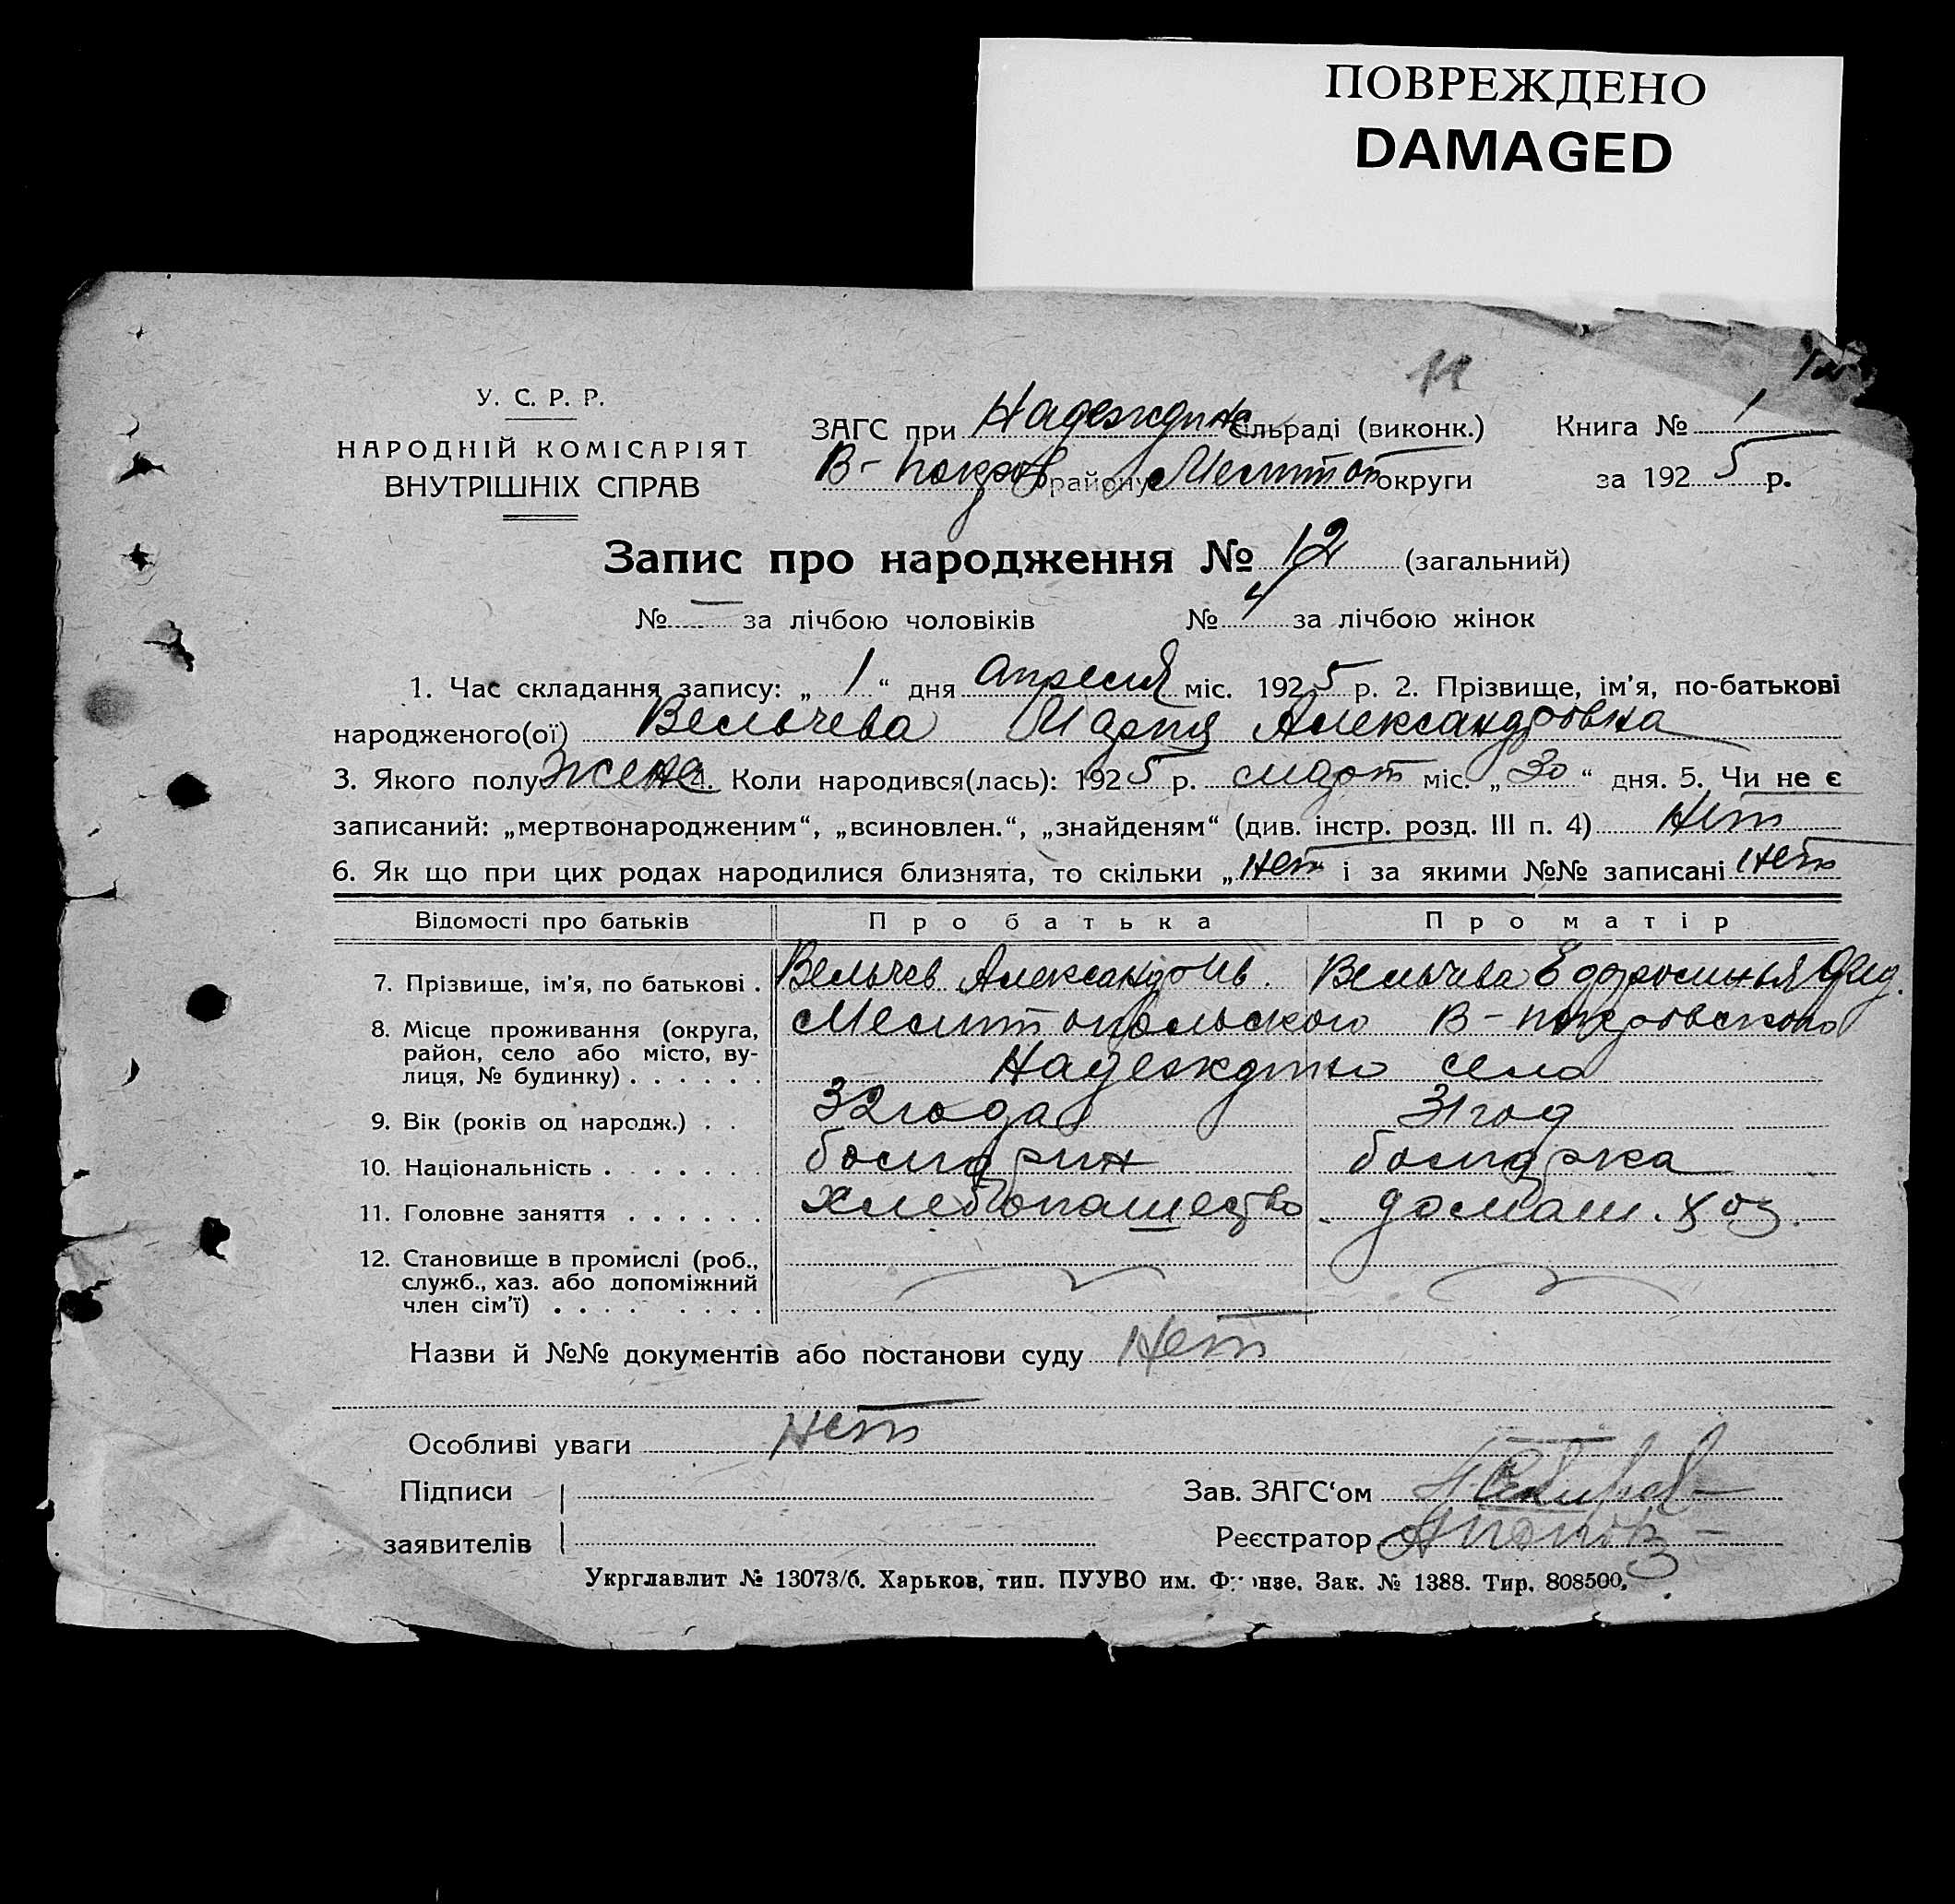 ПОВРЕЖДЕНО
DAMAGED
У. С. Р. Р.
НАРОДНІЙ КОМІСАРІЯТ
ВНУТРІШНІХ СПРАВ
ЗАГС при Надеждин сільраді (виконк.)
В-Покров району Мелитоп округи
Книга № 1
за 1925 р.
Запис про народження № 12 (загальний)
№ — за лічбою чоловіків № 4 за лічбою жінок
1. Час складання запису: „ 1 “ дня апреля міс. 1925 р. 2. Прізвище, ім'я, по-батькові
народженого(ої) Вельчева Мария Александровна
3. Якого полу жена 4. Коли народився(лась): 1925 р. март міс. „ 30 “ дня. 5. Чи не є
записаний: „мертвонародженим“, „всиновлен.“, „знайденям“ (див. інстр. розд. III п. 4) Нет
6. Як що при цих родах народилися близнята, то скільки „ Нет “ і за якими №№ записані Нет
Відомості про батьків Про батька Про матір
7. Прізвище, ім'я, по батькові . Вельчев Александр Ив. Вельчева Ефросинья
8. Місце проживання (округа, район, село або місто, вулиця, № будинку) . . . . . . Мелитопольского В-покровского
Надеждино село
9. Вік (років од народж.) . . 32 года 31 год
10. Національність . . . . . . болгарин болгарка
11. Головне заняття . . . . . . хлебопашество домаш. хоз.
12. Становище в промислі (роб., служб., хаз. або допоміжний член сім'ї) . . . . . . . .
Назви й №№ документів або постанови суду Нет
Особливі уваги Нет
Підписи
заявителів
Зав. ЗАГС‘ом
Реєстратор
Укрглавлит № 13073/б. Харьков, тип. ПУУВО им. Фрунзе. Зак. № 1388. Тир. 808500.